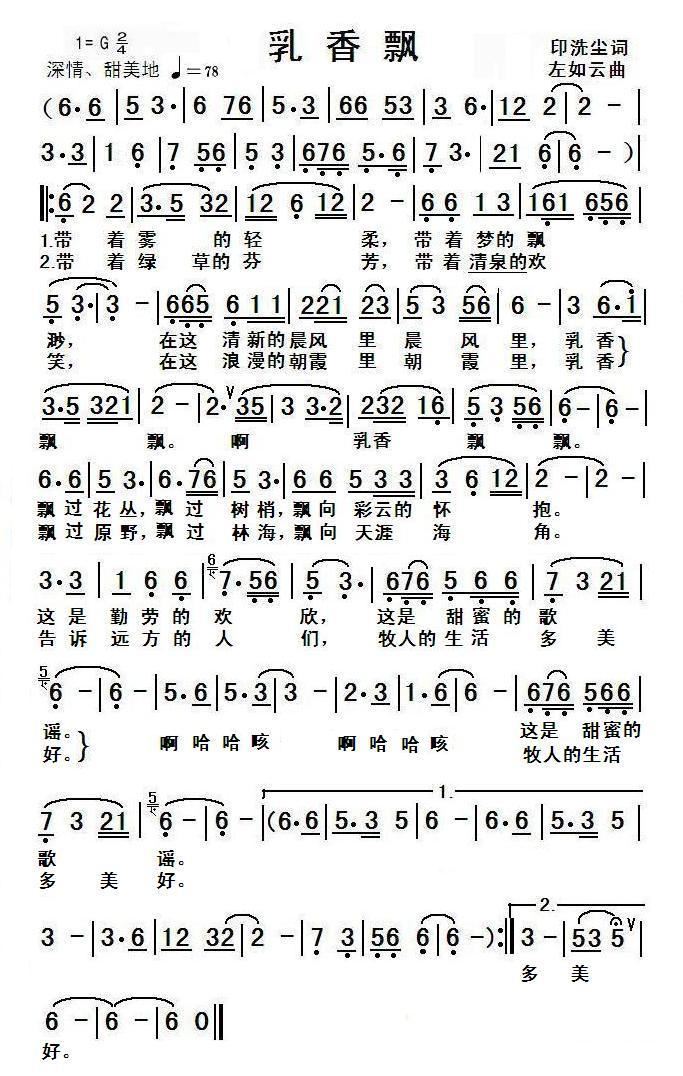 乳香飘
1=G 2/4
印洗尘词
深情、甜美地 ♩=78
左如云曲
(6·6 | 5 3· | 6 76 | 5·3 | 66 53 | 3 6· | 12 2 | 2 - |
3·3 | 1 6 | 7 56 | 5 3 | 676 5·6 | 7 3· | 21 6 | 6 - )|
|: 6 2 2 | 3·5 32 | 12 6 12 | 2 - | 6 6 1 3 | 161 656 |
1.带着雾的轻柔，带着梦的飘
2.带着绿草的芬芳，带着清泉的欢
5 3· | 3 - | 665 611 | 221 23 | 5 3 56 | 6 - | 3 6·i |
渺，在这清新的晨风里晨风里，乳香
笑，在这浪漫的朝霞里朝霞里，乳香
3·5 321 | 2 - | 2· 35 | 3 3·2 | 232 16 | 5 3 56 | 6 - | 6 - |
飘飘。啊乳香飘飘。
6·6 | 5 3· | 6·76 | 5 3· | 6 6 | 5 3 3 | 3 6 12 | 2 - |
飘过花丛，飘过树梢，飘向彩云的怀抱。
飘过原野，飘过林海，飘向天涯海角。
3·3 | 1 6 6 | 6 7·56 | 5 3· | 676 5 6 6 | 7 3 21 |
这是勤劳的欢欣，这是甜蜜的歌
告诉远方的人们，牧人的生活多美
5 6 - | 6 - | 5·6 | 5·3 | 3 - | 2·3 | 1·6 | 6 - | 676 566 |
谣。啊哈哈咳啊哈哈咳这是甜蜜的
好。牧人的生活
7 3 21 | 5 6 - | 6 - | 1. (6·6 | 5·3 5 | 6 - | 6·6 | 5·3 5 |
歌谣。
多美好。
3 - | 3·6 | 12 32 | 2 - | 7 3 | 56 6 | 6 - ) :| 2. 3 - | 53 5 |
多美
6 - | 6 - | 6 0 ||
好。